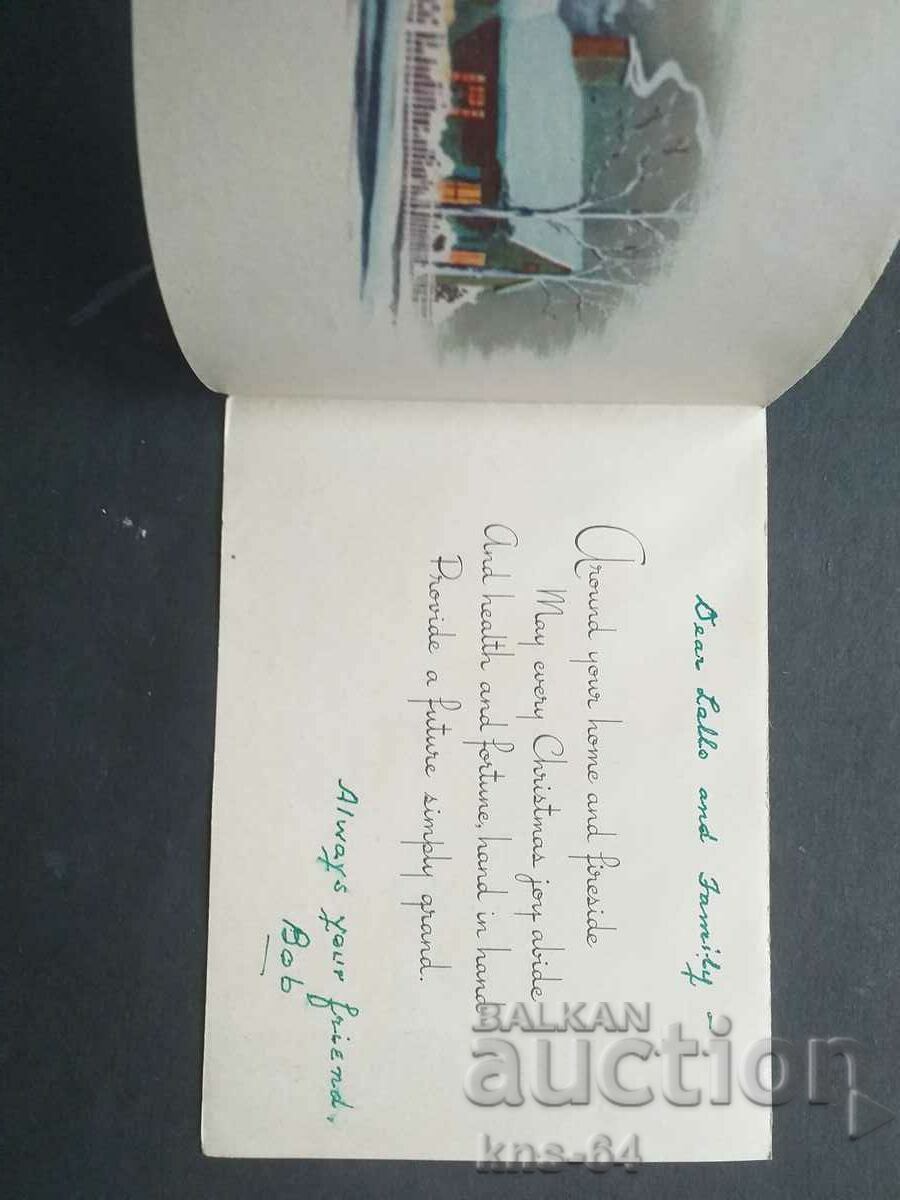 Dear Lallo and Family -
Around your home and fireside
May every Christmas joy abide
And health and fortune, hand in hand
Provide a future simply grand.
Always your friend,
Bob
BALKAN
auction
kns-64